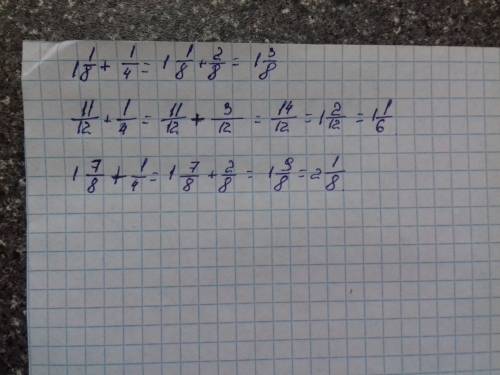 1 1/8 + 1/4 = 1 1/8 + 2/8 = 1 3/8
11/12 + 1/4 = 11/12 + 3/12 = 14/12 = 1 2/12 = 1 1/6
1 7/8 + 1/4 = 1 7/8 + 2/8 = 1 9/8 = 2 1/8